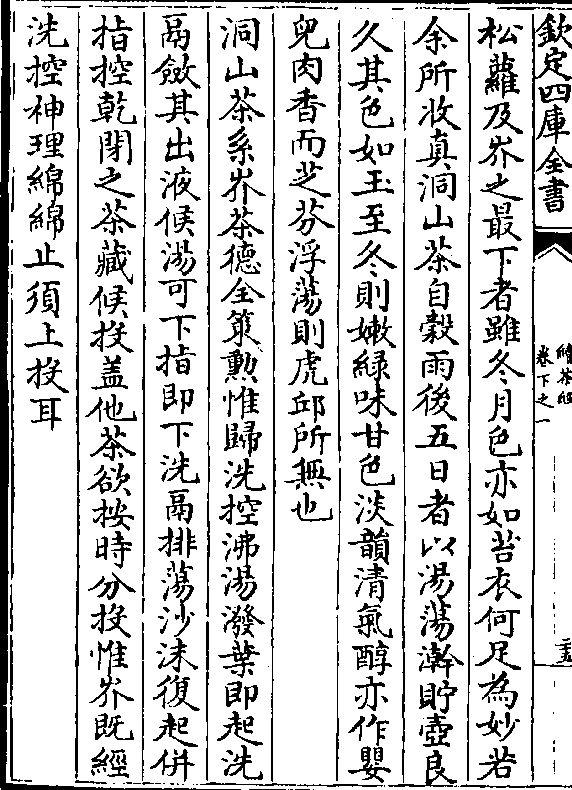 欽定四庫全書
續茶經
卷下之一
松蘿及岕之最下者雖冬月色亦如苔衣何足為妙若
余所收真洞山茶自穀雨後五日者以湯蕩澣貯壺良
久其色如玉至冬則嫩緑味甘色淡韻清氣醇亦作嬰
兒肉香而芝芬浮蕩則虎邱所無也
洞山茶系岕茶德全策勲惟歸洗控沸湯潑葉即起洗
鬲斂其出液候湯可下指即下洗鬲排蕩沙沫復起併
指控乾閉之茶藏候投盖他茶欲按時分投惟岕既經
洗控神理綿綿止須上投耳